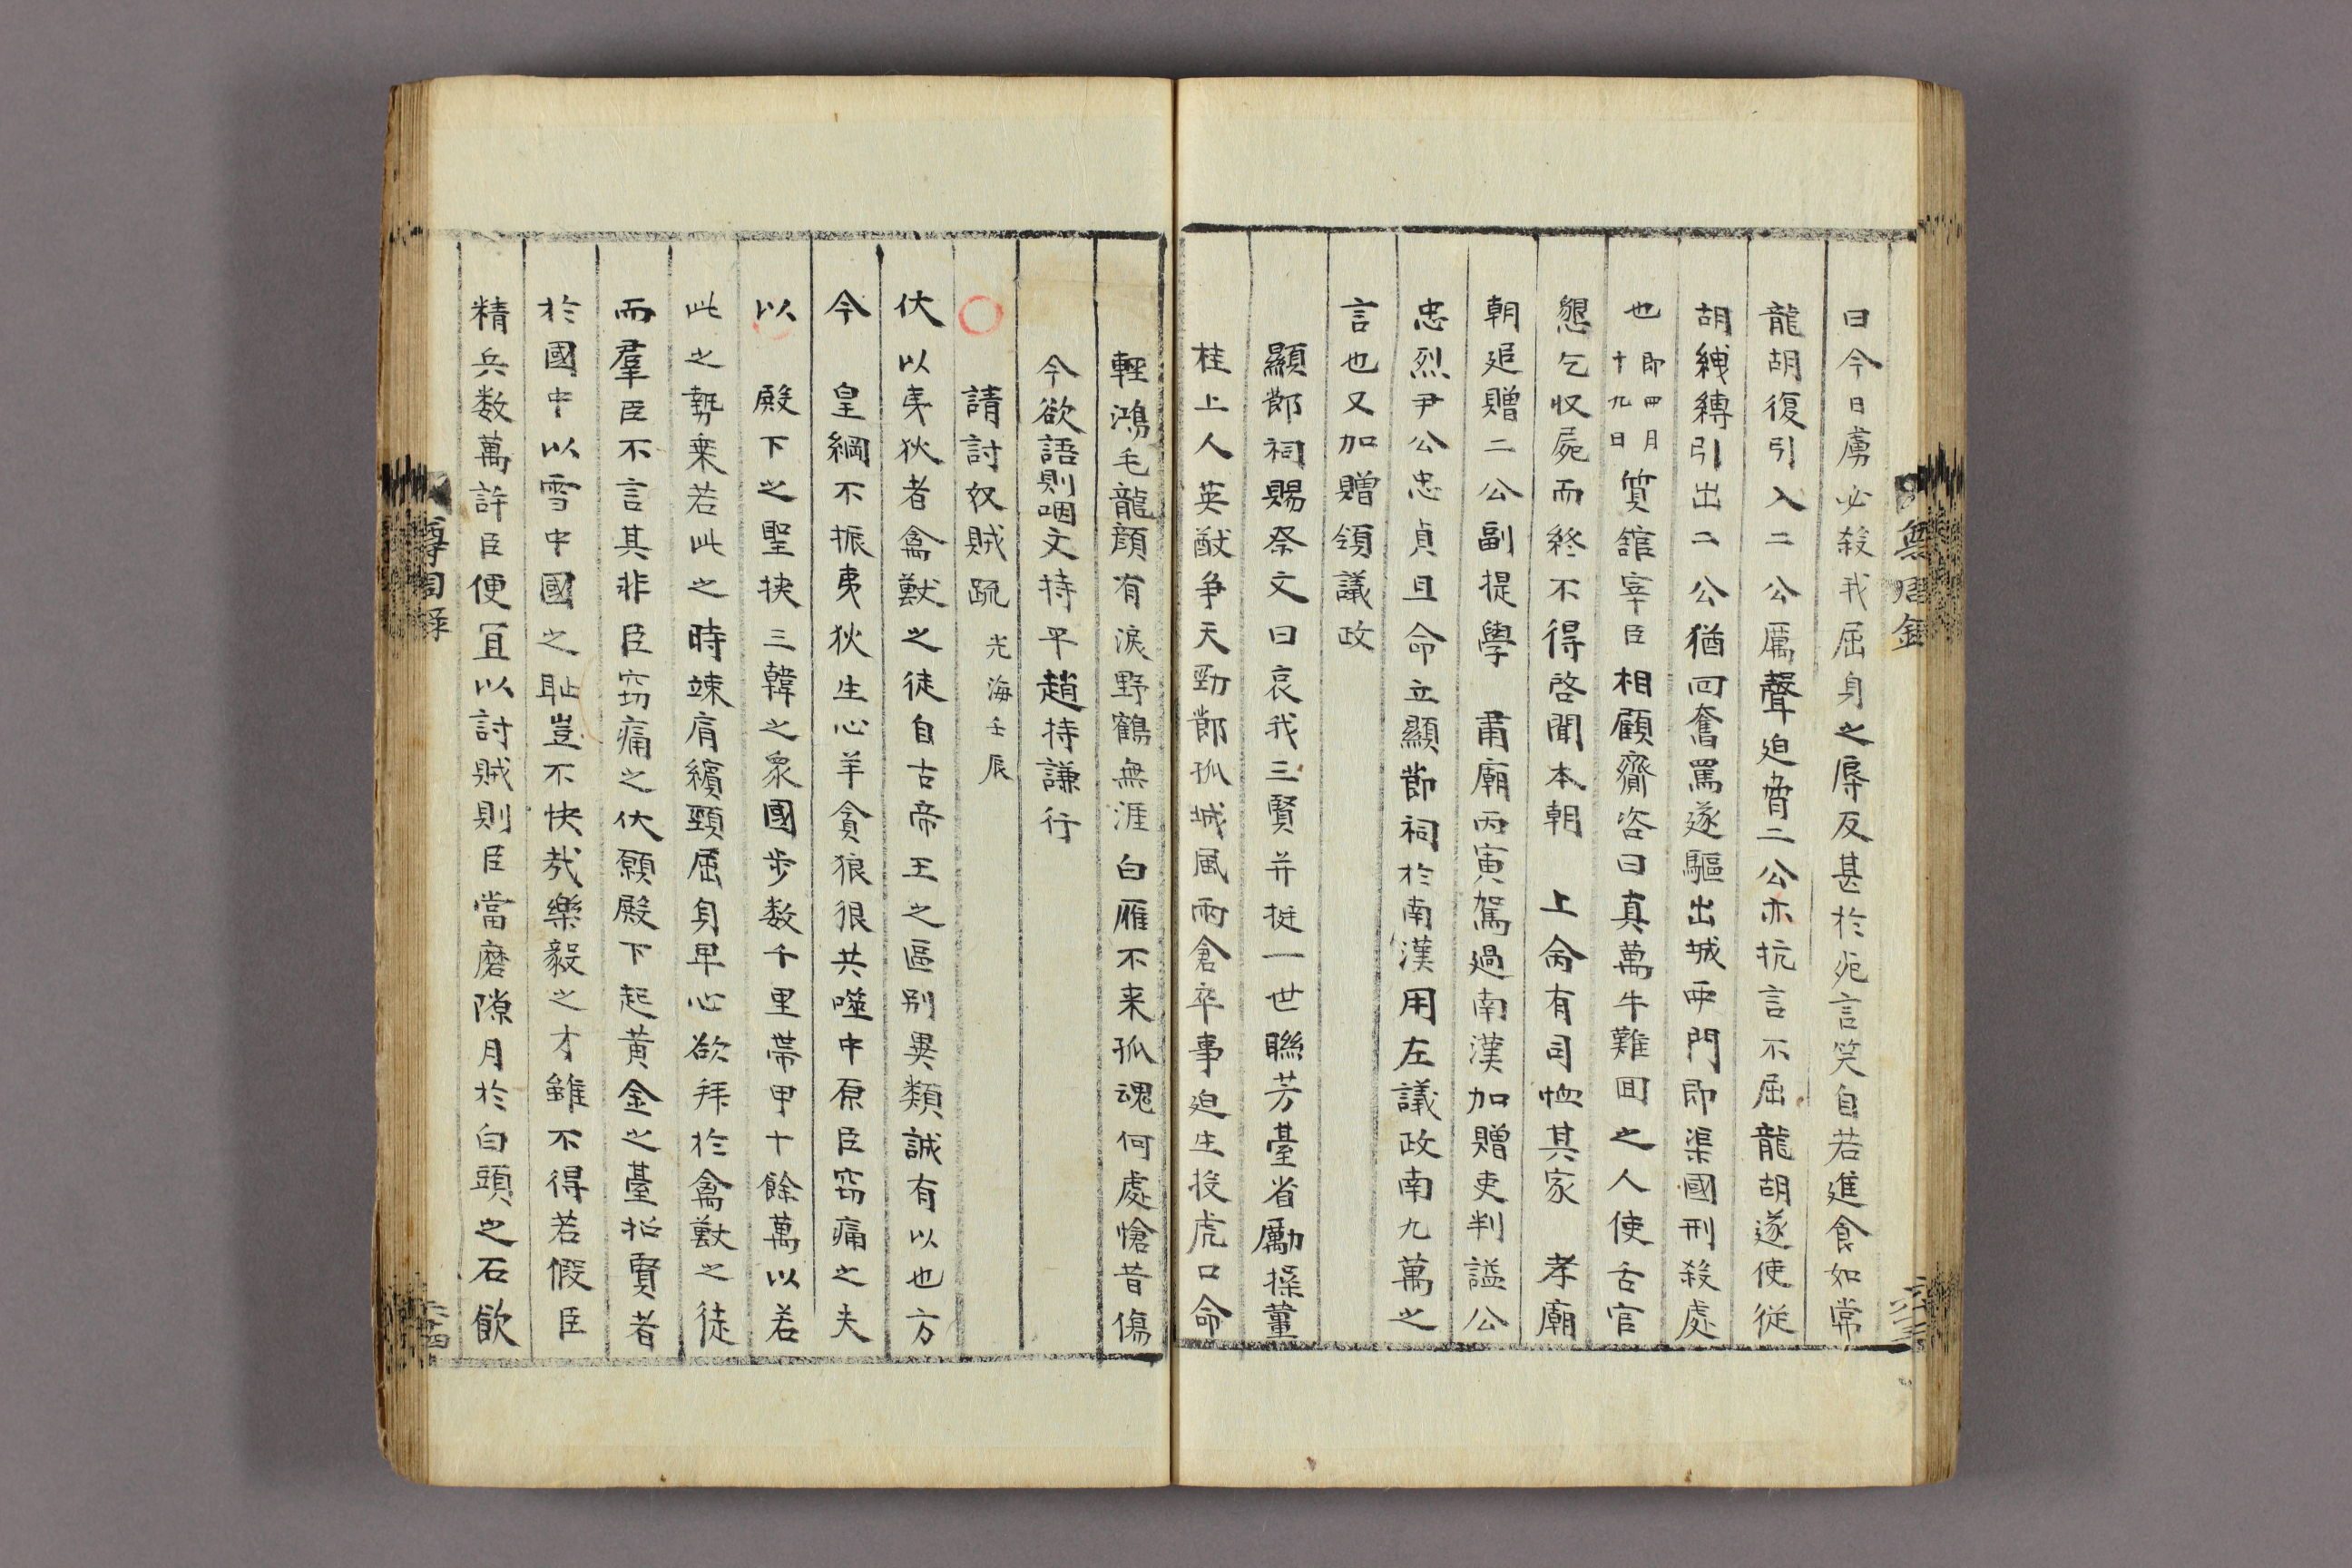 曰今日虜必殺我屈身之辱反甚於死言笑自若進食如常
龍胡復引入二公厲聲迫脅二公亦抗言不屈龍胡遂使從
胡絏縛引出二公猶回奮罵遂驅出城西門即渠國刑殺處
也即四月十九日質館宰臣相顧齎咨曰真萬牛難回之人使舌官
懇乞収屍而終不得啓聞本朝 上命有司恤其家 孝廟
朝追贈二公副提學 肅廟丙寅駕過南漢加贈吏判謚公
忠烈尹公忠貞且命立顯節祠於南漢用左議政南九萬之
言也又加贈領議政
顯節祠賜祭文曰哀我三賢并挺一世聯芳臺省勵操薑
桂上人英猷爭天勁節孤城風雨倉卒事迫生投虎口命
輕鴻毛龍顔有淚野鶴無涯白雁不来孤魂何處愴昔傷
今欲語則咽文持平趙持謙行
○ 請討奴賊疏 光海壬辰
伏以夷狄者禽獸之徒自古帝王之區别異類誠有以也方
今 皇綱不振夷狄生心羊貪狼狠共噬中原臣窃痛之夫
以 殿下之聖挾三韓之衆國步数千里帶甲十餘萬以若
此之勢乗若此之時竦肩縮頸屈身卑心欲拜於禽獸之徒
而羣臣不言其非臣窃痛之伏願殿下起黄金之臺招賢者
於國中以雪中國之耻豈不快哉樂毅之才雖不得若假臣
精兵数萬許臣便宜以討賊則臣當磨隙月於白頭之石飲
無
六十三
尊周錄
六十四